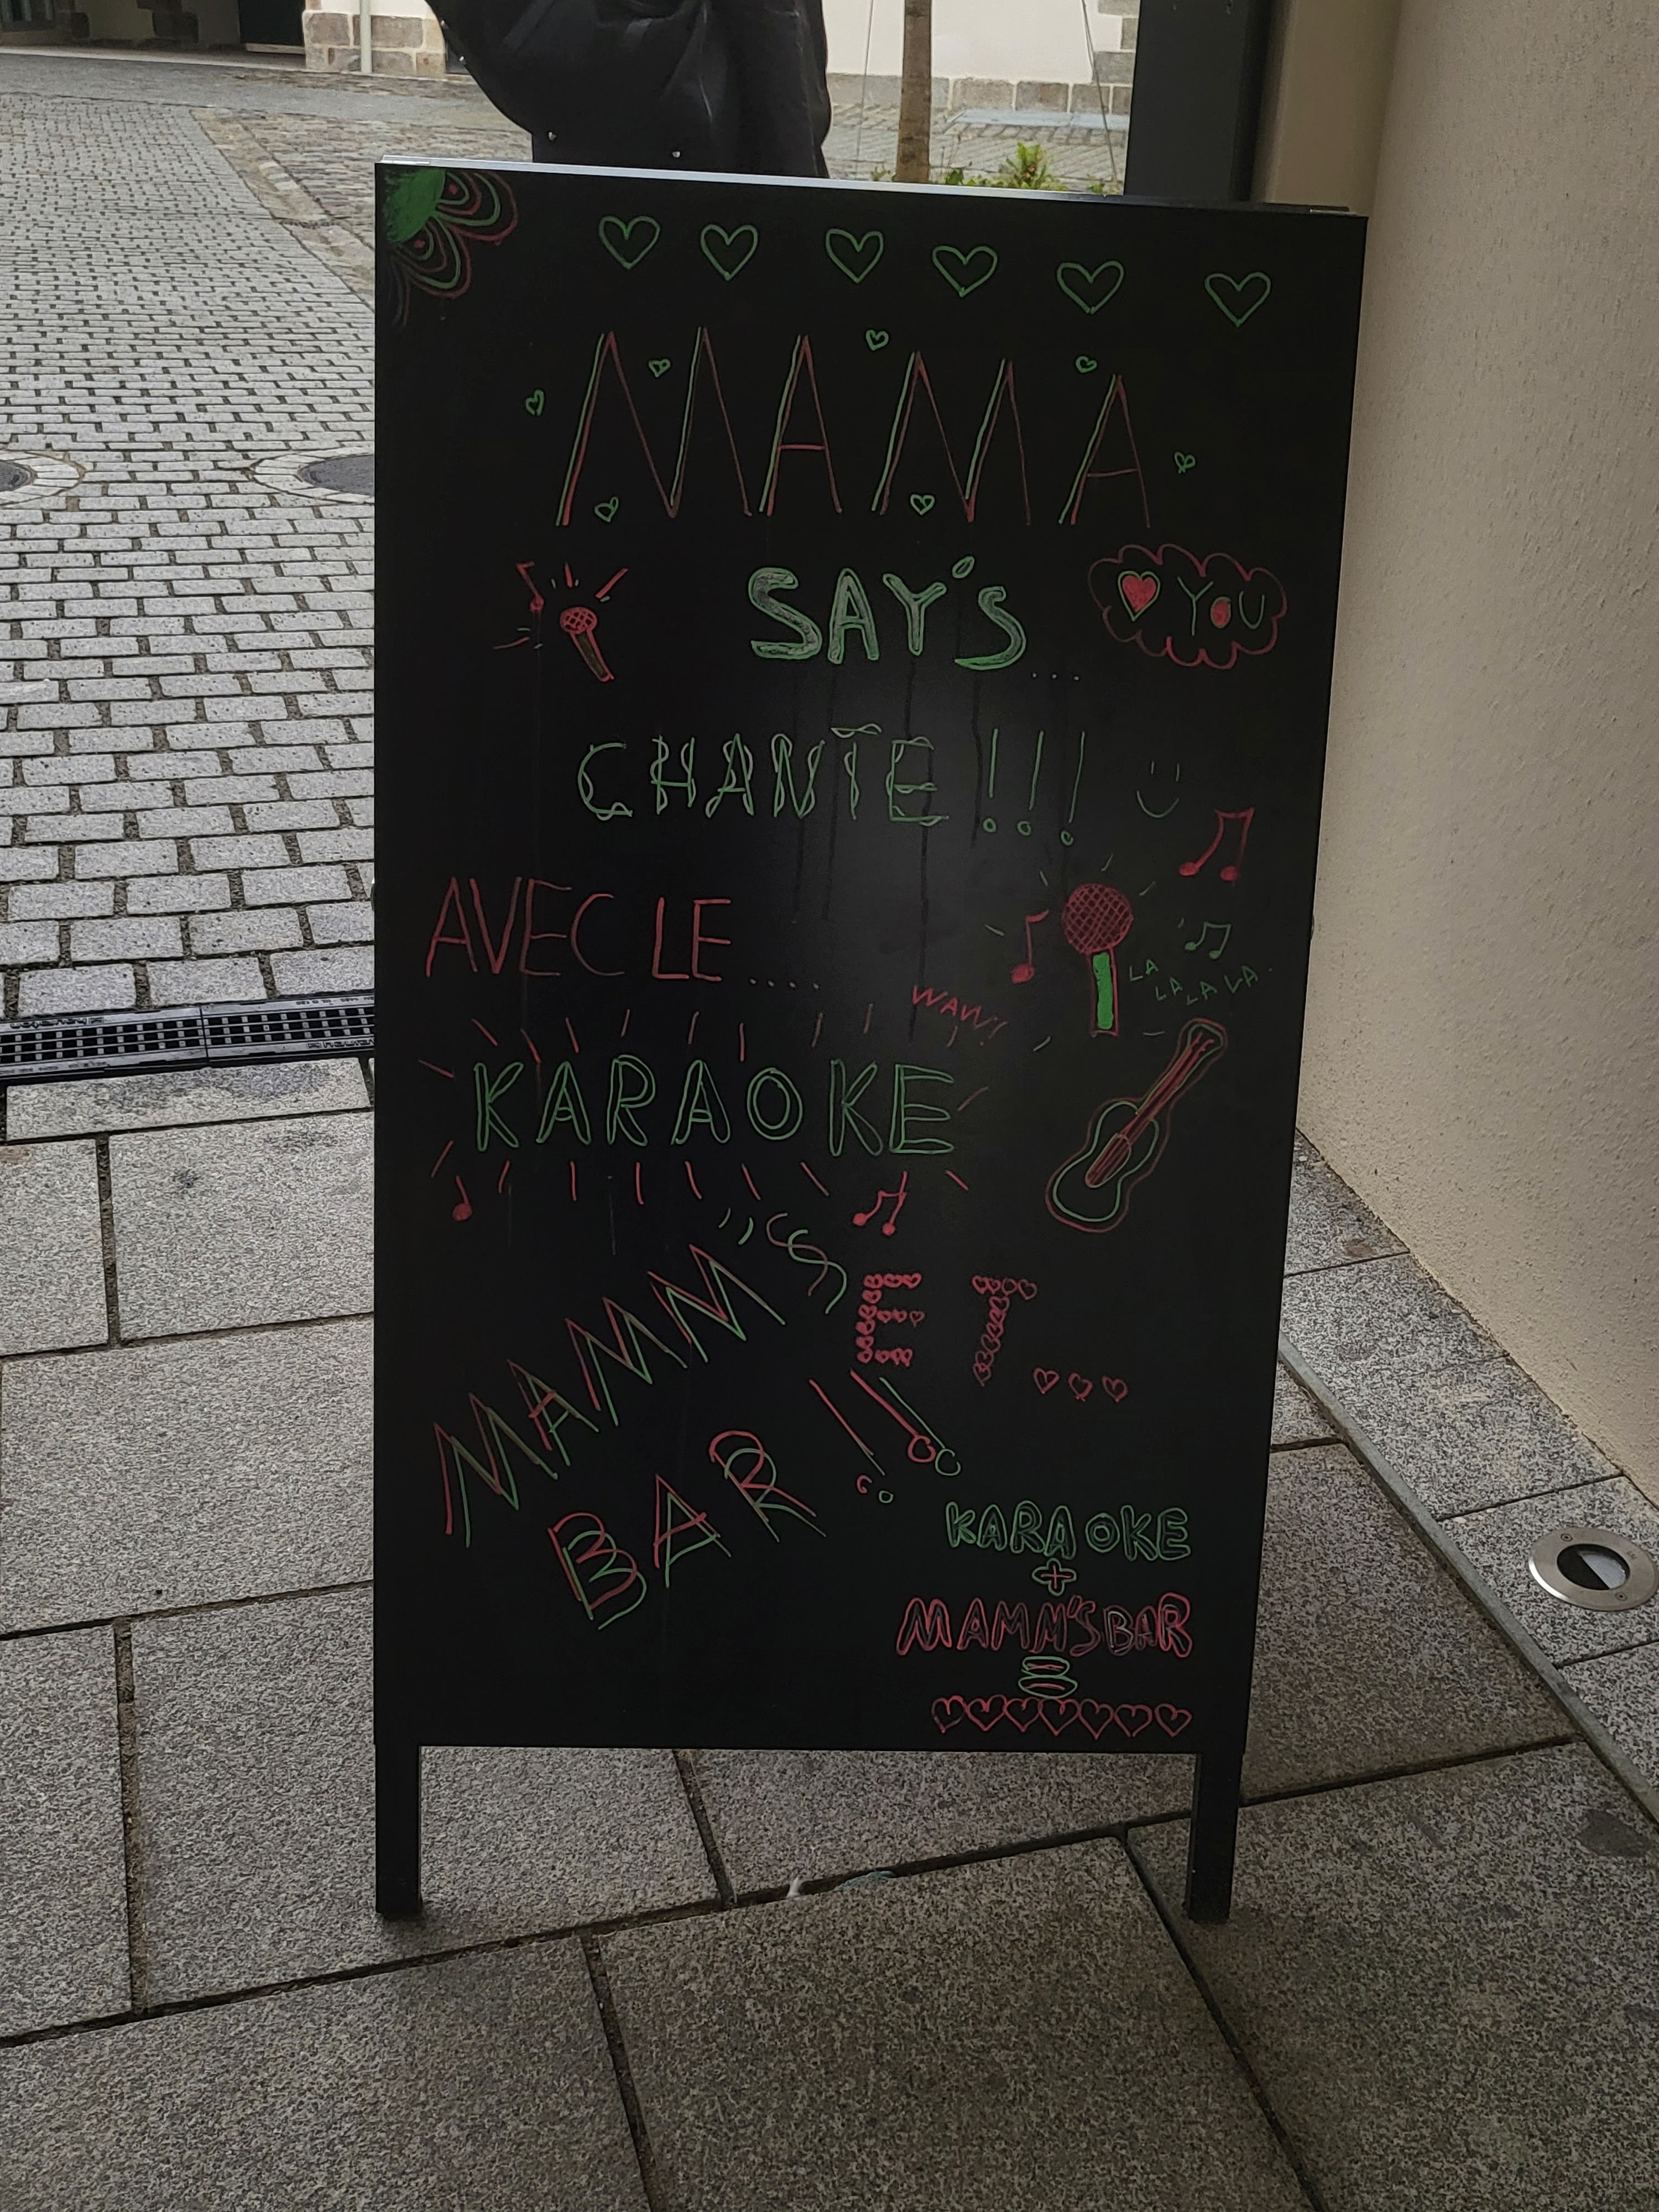 MAMA
SAY'S...
YOU
CHANTE!!!
AVEC LE....
LA
LA LA LA
WAW!
KARAOKE
MAMM'S
BAR
ET...
KARAOKE
+
MAMM'S BAR
=